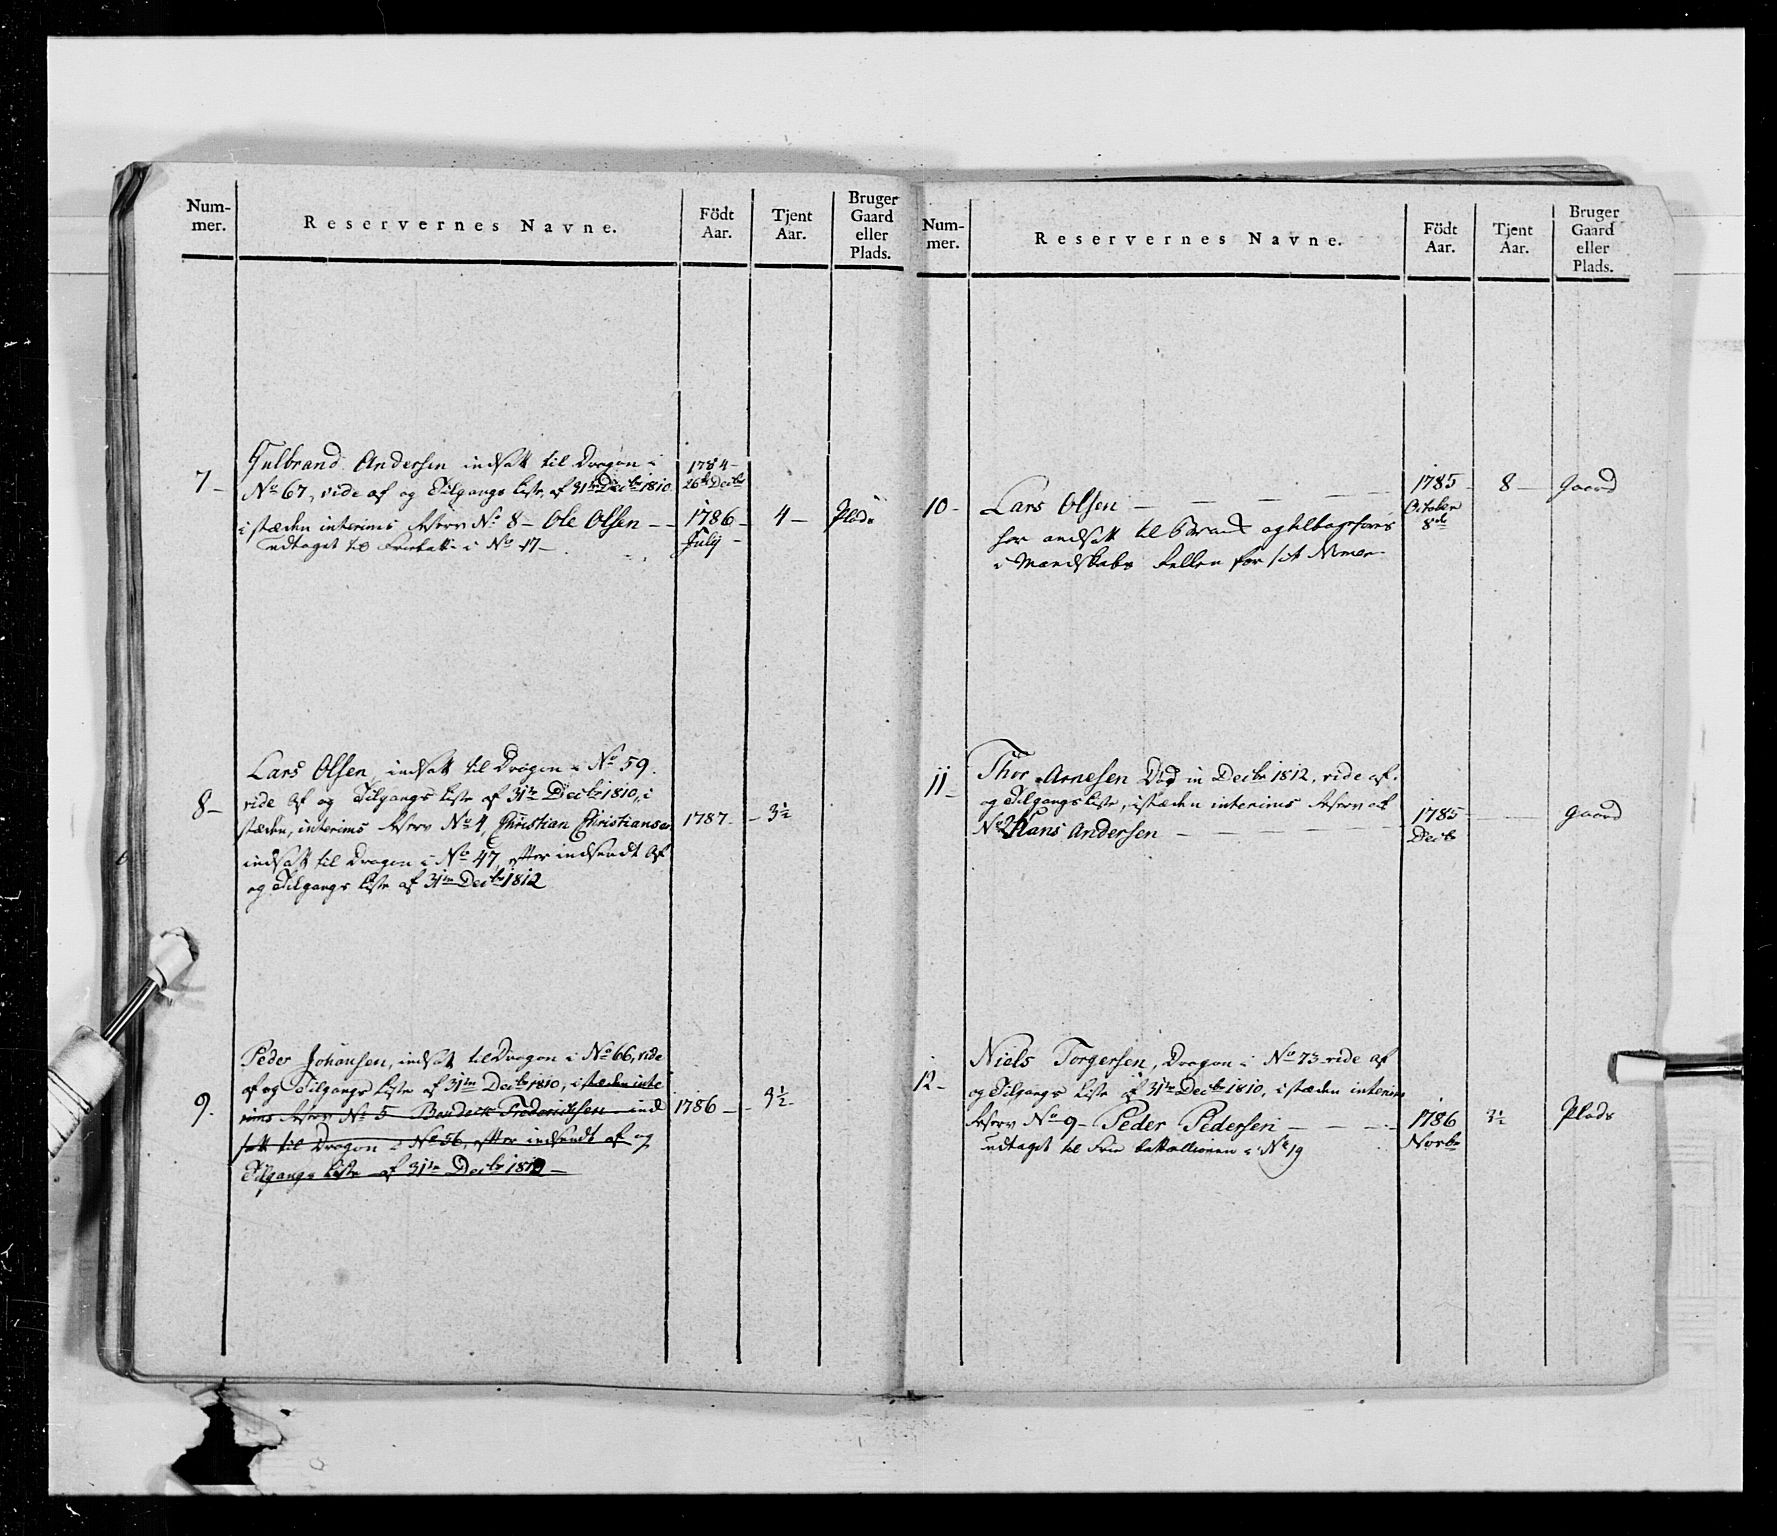 Num-
mer.
Reservernes Navne.
Födt
Aar.
Tjent
Aar.
Bruger
Gaard
eller
Plads.
7 –
Gulbrand Andersen indsatt til Dragon i
No 67, vide af og Tilgangs liste af 31te Decbr 1810
i stæden interims Reserv No 8 – Ole Olsen – –
udtaget til Friebatt. i No 17 –
1784 –
26de Decbr
1786 –
July –
4 –
Plads
8 –
Lars Olsen, indsatt til Dragon i No 59.
vide Af og Tilgangs liste af 31te Decbr 1810, i
stæden, interims Reserv No 4, Christian Christiansen
indsatt til Dragon i No 47, efter indsendt Af
og Tilgangs liste af 31te Decbr 1812
1787 –
– 3½
9.
Peder Johansen, indsatt til Dragon i No 66, vide
af og Tilgangs liste af 31te Decbr 1810, i stæden inte
rims Reserv No 5 Frederichsen ind
satt til Dragon i No 56, efter indsendt af og
Tilgangs liste af 31te Decbr 1812 –
1786 –
- 3½
Num-
mer.
Reservernes Navne.
Födt
Aar.
Tjent
Aar.
Bruger
Gaard
eller
Plads.
10 –
Lars Olsen – – – –
har andsatt til og
i Mandskabs Rullen for sit Numer
1785 –
October
8de
8 –
Gaard
11 –
Thor Arnesen Död in Decbr 1812, vide af
og Tilgangs liste, i stæden interims Reserv af
No 2 Hans Andersen – – – – –
1785
Decbr
Gaard
12 –
Niels Torgersen, Dragon i No 73 vide af
og Tilgangs liste af 31te Decbr 1810, i stæden interims
Reserv No 9 – Peder Pedersen – – –
udtaget til Frie battallionen i No 19
1786
Novbr
3½
Plads